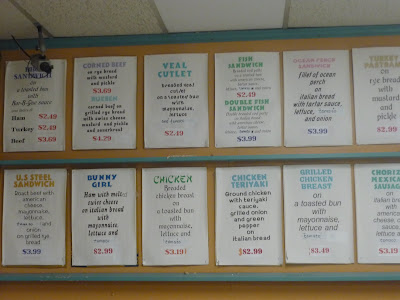 SANDWICH
a toasted bun
with
Bar-B-Que sauce
Ham $2.49
Turkey $2.49
Beef $3.69
CORNED BEEF
on rye bread
with mustard
and pickle
$3.69
REUBEN
corned beef on
grilled rye bread
with swiss cheese
mustard and pickle
and sauerkraut
$4.29
VEAL
CUTLET
breaded veal
cutlet
on a toasted bun
with
mayonnaise,
lettuce
and tomato
$2.49
FISH
SANDWICH
Breaded cod patty
on a toasted bun
with american
cheese,
$2.49
DOUBLE FISH
SANDWICH
$3.99
OCEAN PERCH
SANDWICH
Fillet of ocean
perch
on
italian bread
with tarter sauce,
lettuce,
and onion
$3.99
TURKEY
PASTRAMI
on
rye bread
with
mustard
and
pickle
$2.99
U.S STEEL
SANDWICH
Roast beef with
american
cheese,
mayonnaise,
lettuce,
tomato, grilled
onion
on grilled rye
bread
$3.99
BUNNY
GIRL
Ham with melted
swiss cheese
on italian bread
with
mayonnaise,
lettuce and
tomato
$2.99
CHICKEN
Breaded
chicken breast
on
a toasted bun
with
mayonnaise,
lettuce and
tomato
$3.19
CHICKEN
TERIYAKI
Ground chicken
with teriyaki
sauce,
grilled onion
and green
pepper
on
italian bread
$2.99
GRILLED
CHICKEN
BREAST
on
a toasted bun
with
mayonnaise,
lettuce and
tomato
$3.49
MEXICAN
SAUSAGE
on
italian bread
with
american
cheese,
mayonnaise,
lettuce and
tomato
$3.69